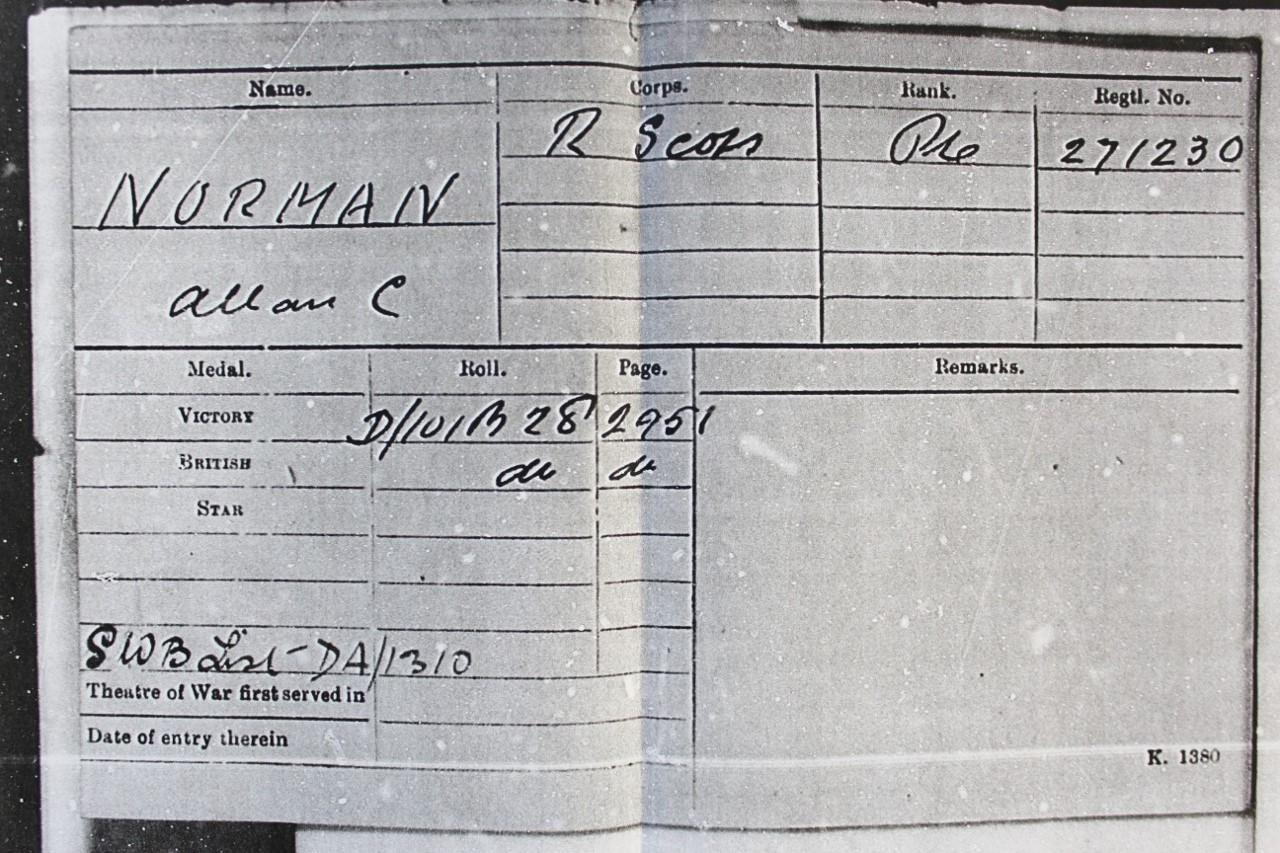 Name. Corps. Rank. Regtl. No.
R Scots Pte 27/230
NORMAN
Allan C
Medal. Roll. Page. Remarks.
VICTORY D/101B 28 2951
BRITISH do do
STAR
SWB List - DA/1310
Theatre of War first served in
Date of entry therein
K. 1380